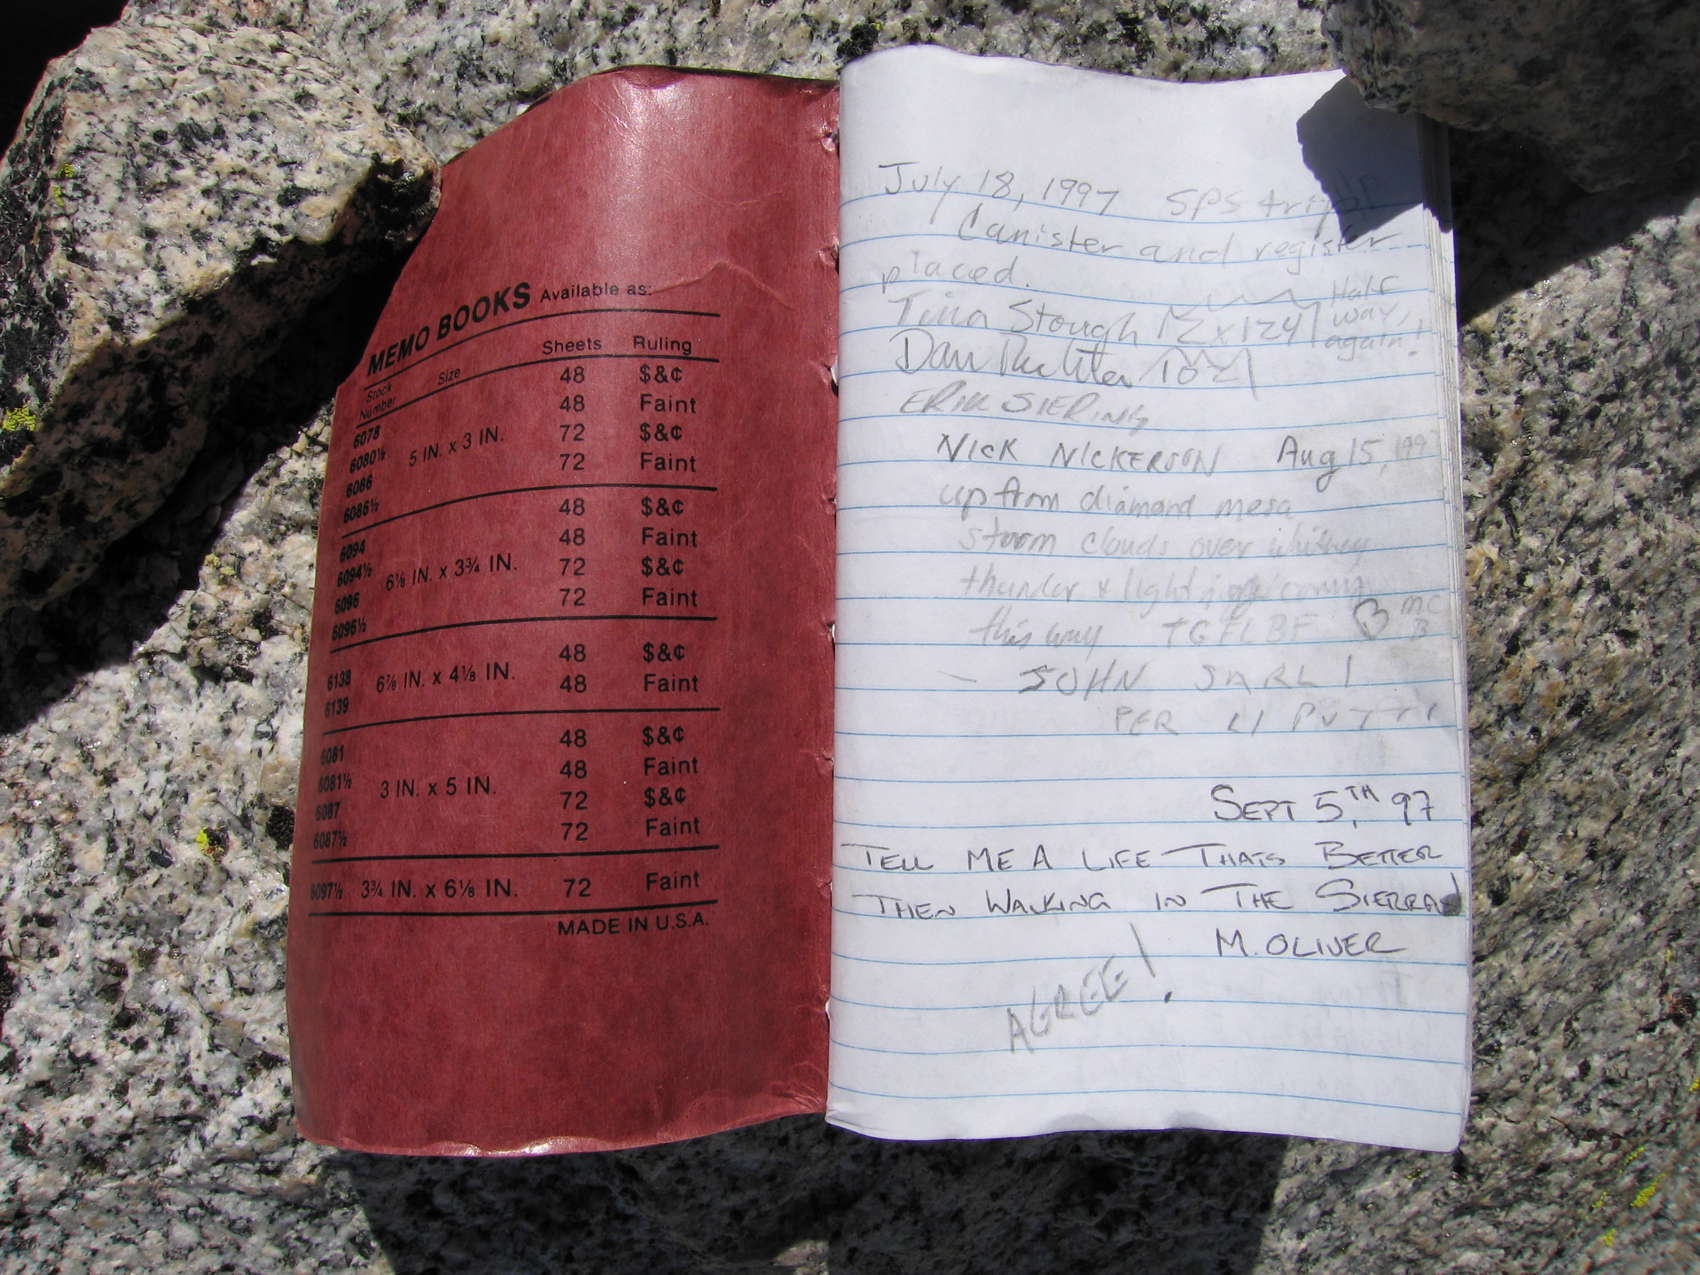 MEMO BOOKS Available as:
Stock Number Size Sheets Ruling
6078 48 $&¢
6080½ 48 Faint
5 IN. x 3 IN.
6086 72 $&¢
6086½ 72 Faint
6094 48 $&¢
6094½ 48 Faint
6⅛ IN. x 3¾ IN.
6096 72 $&¢
6096½ 72 Faint
6138 48 $&¢
6⅞ IN. x 4⅛ IN.
6139 48 Faint
6081 48 $&¢
6081½ 48 Faint
3 IN. x 5 IN.
6087 72 $&¢
6087½ 72 Faint
6097½ 3¾ IN. x 6⅛ IN. 72 Faint
MADE IN U.S.A.
July 18, 1997 SPS
Canister and register
placed.
Tina Stough 12x124 Half
way,
again!
Dan Richter
ERIK SIERING
NICK NICKERSON Aug 15, 1997
up from diamond mesa
storm clouds over whitney
thunder & lightning coming
this way TGFLBF
MC
B
- JOHN
PER
SEPT 5,TH 97
TELL ME A LIFE THATS BETTER
THEN WALKING IN THE SIERRAS
M. OLIVER
AGREE!